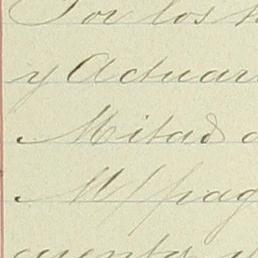 Por los
y Actuar
Mitad
M/pag
cuenta y